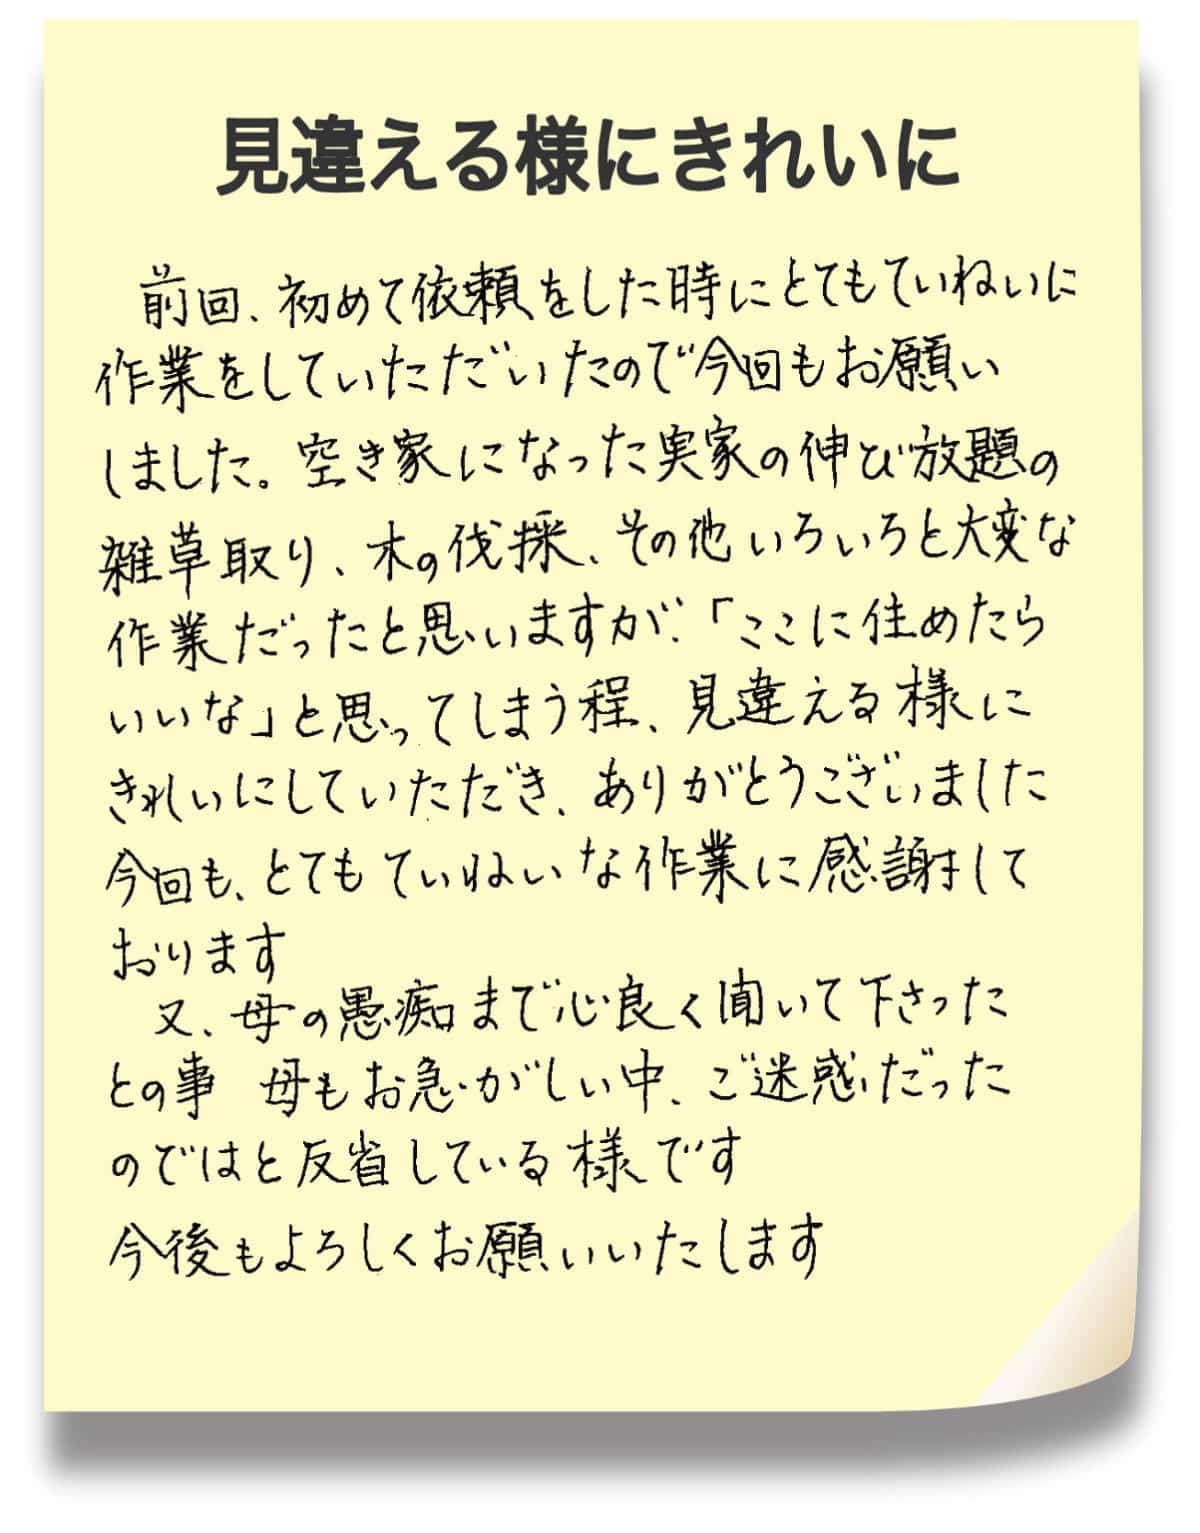 見違える様にきれいに
前回、初めて依頼をした時にとてもていねいに
作業をしていただいたので今回もお願い
しました。空き家になった実家の伸び放題の
雑草取り、木の伐採、その他いろいろと大変な
作業だったと思いますが、「ここに住めたら
いいな」と思ってしまう程、見違える様に
きれいにしていただき、ありがとうございました
今回も、とてもていねいな作業に感謝して
おります
又、母の愚痴まで心良く聞いて下さった
との事 母もお急がしい中、ご迷惑だった
のではと反省している様です
今後もよろしくお願いいたします